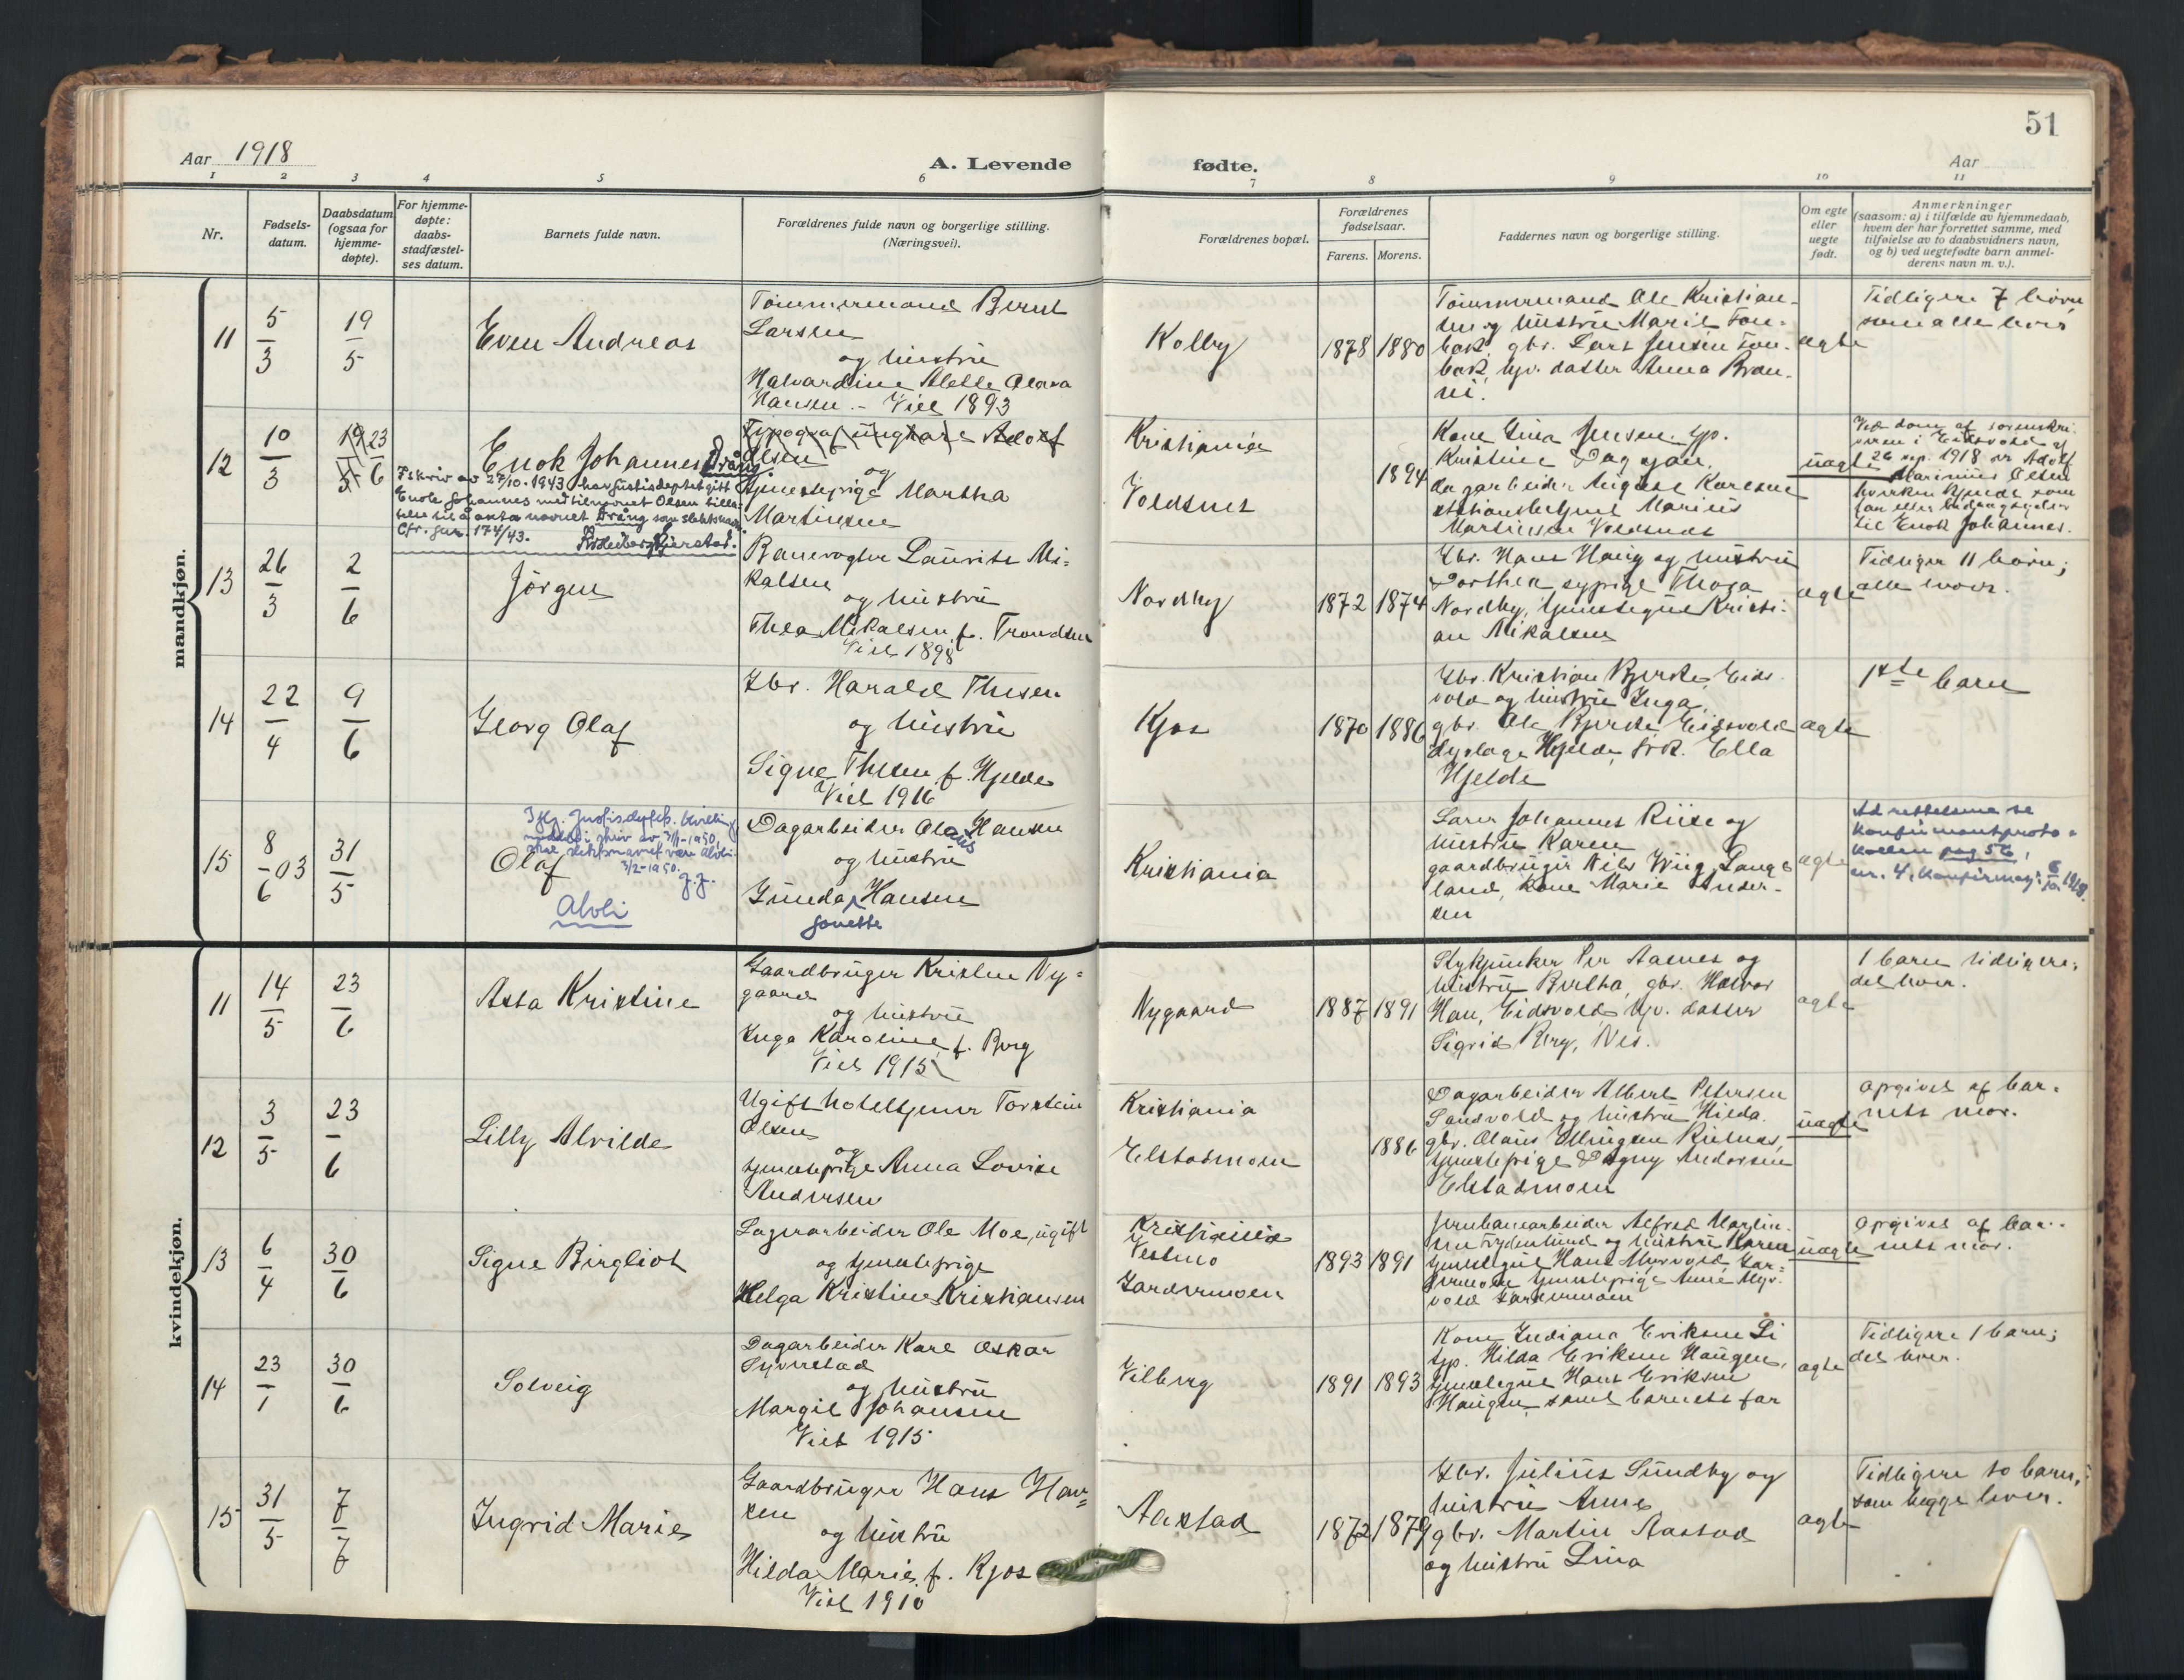 51
Aar 1918
A. Levende
fødte.
Aar
1 2 3 4 5 6 7 8 9 10 11
Nr.
Fødsels-
datum.
Daabsdatum
(ogsaa for
hjemme-
døpte).
For hjemme-
døpte:
daabs-
stadfæstel-
ses datum.
Barnets fulde navn.
Forældrenes fulde navn og borgerlige stilling.
(Næringsvei).
Forældrenes bopæl.
Forældrenes
fødselsaar.
Farens. Morens.
Faddernes navn og borgerlige stilling.
Om egte
eller
uegte
født.
Anmerkninger
(saasom: a) i tilfælde av hjemmedaab,
hvem der har forrettet samme, med
tilføielse av to daabsvidners navn,
og b) ved uegtefødte barn anmel-
derens navn m. v.).
mandkjøn.
11
5/3
19/5
Even Andreas
Tömmermand Bernt
Larsen
og hustru
Halvardine Alette Olava
Hansen. - Viet 1893
Kolby
1878 1880
Tömmermand Ole Kristian-
sen og hustru Marie
gbr. Lars Jensen
datter Anna
ægte
Tidligere 7 börn
som alle lever
12
10/3
19/5 23/6
Enok Johannes Drång
I skriv av 27/10-1943 har Justisdeptet gitt
Enok Johannes med tilnavnet Olsen tilla-
telse til å anta navnet Drång som slektsnavn
Cfr. jnr. 174/43.
Typograf ungkarl Adolf
Olsen
og
tjenestepige Martha
Martinsen
Kristiania
Voldsnes
1894
Kone Lina Jensen, tjp.
Kristine Dag
dagarbeider August Karlsen
stationsbetjent Marius
Martinsen Voldsnes
uægte
Ved dom af sorenskri-
veren i Eidsvold af
26 sep. 1918 er Adolf
Marinius Olsen
hverken kjendt som
far eller bidragsyder
til Enok Johannes.
13
26/3
2/6
Jörgen
Banevogter Laurits Mi-
kalsen
og hustru
Thea Mikalsen f. Trondsen
Viet 1898
Nordby
1872 1874
Gbr. Hans Haug og hustru
Dorthea, sypige Thora
Nordby, tjenestegut Kristi-
an Mikalsen
ægte
Tidliger 11 barn;
alle lever.
14
22/4
9/6
Georg Olaf
Gbr. Harald Thesen
og hustru
Signe Thesen f. Hjelde
Viet 1916
Kjos
1870 1886
Gbr. Kristian Bjerke, Eids-
vold og hustru Inga,
gbr. Ole Bjerke Eidsvold
dyrlæge Hjelde, frk. Ella
Hjelde
ægte
1ste barn
15
8/6 03
31/5
Olaf
Ifg. Justisdeptets bevilling
meddelt i skriv av 31/1-1950,
skal slektsnavnet være Alvli.
3/2-1950. J.J.
Alvli
Dagarbeider Olaus Hansen
og hustru
Gunda Hansen
Janette
Kristiania
Larer Johannes Riise og
hustru Karen
gaardbruger Nils Wiig, Lange
land, Kone Marie Ander-
sen
ægte
Ad rettelsene se
konfirmantproto-
kollen pag 56,
nr. 4, konfirmasj. 6/10 1918.
kvindekjøn.
11
14/5
23/6
Asta Kristine
Gaardbruger Kristen Ny-
gaard
og hustru
Inga Karoline f. Berg
Viet 1915
Nygaard
1887 1891
Stykjunker Per Aasnes og
hustru Bertha, gbr. Halvor
Hau, Eidsvold, hjv. datter
Sigrid Berg, Nes.
ægte
1 barn tidligere;
det lever.
12
3/5
23/6
Lilly Alvilde
Ugift hoteltjener Torstein
Olsen
og
tjenestepige Anna Lovise
Andersen
Kristiania
Elstadmoen
1886
Dagarbeider Albert Petersen
Sandvold og hustru Hilda.
gbr. Olaus Ellingsen
tjenestepige Dagny Andersen
Elstadmoen
uægte
opgivet af bar-
nets mor.
13
6/4
30/6
Signe Birgliot
Lagerarbeider Ole Moe, ugift
og tjenestepige
Helga Kristine Kristiansen
Kristiania
Vestmo
Gardermoen
1893 1891
Jernbanearbeider Alfred Martin-
sen Frydenlund og hustru Karen
tjenestegut Hans Myrvold, Gar-
dermoen tjenestepige Anne Myr-
vold Gardermoen
uægte
opgivet af bar-
nets mor.
14
23/1
30/6
Solveig
Dagarbeider Karl Oskar
Syverstad
og hustru
Margit Johansen
Viet 1915
Vilberg
1891 1893
Kone Indiana Eriksen Li
tjp. Hilda Eriksen Haugen,
tjenestegut Hans Eriksen
Haugen samt barnets far
ægte
Tidligere 1 barn;
det lever.
15
31/5
7/7
Ingrid Marie
Gaardbruger Hans Han-
sen
og hustru
Hilda Marie f. Kjos
Viet 1910
Aastad
1872 1879
Gbr. Julius Sundby og
hustru Anne
gbr. Martin Aastad
og hustru Lina
ægte
Tidligere to barn,
som begge lever.